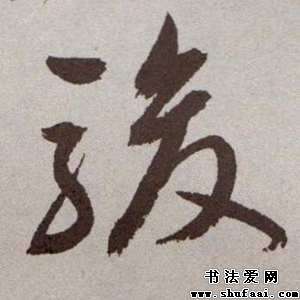 駿
书法爱网
www.shufaai.com